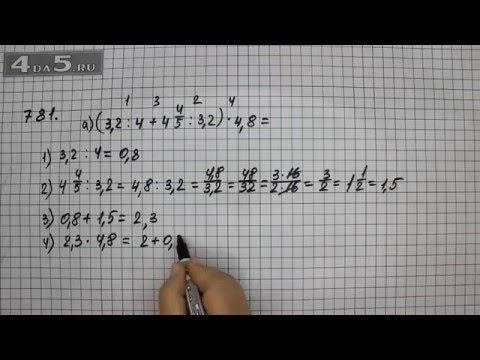 4DA5.RU
781.
1 3 2 4
а) (3,2 : 4 + 4 4/5 : 3,2) · 4,8 =
1) 3,2 : 4 = 0,8
2) 4 4/5 : 3,2 = 4,8 : 3,2 = 4,8/3,2 = 48/32 = 3·16/2·16 = 3/2 = 1 1/2 = 1,5
3) 0,8 + 1,5 = 2,3
4) 2,3 · 4,8 = 2 + 0,